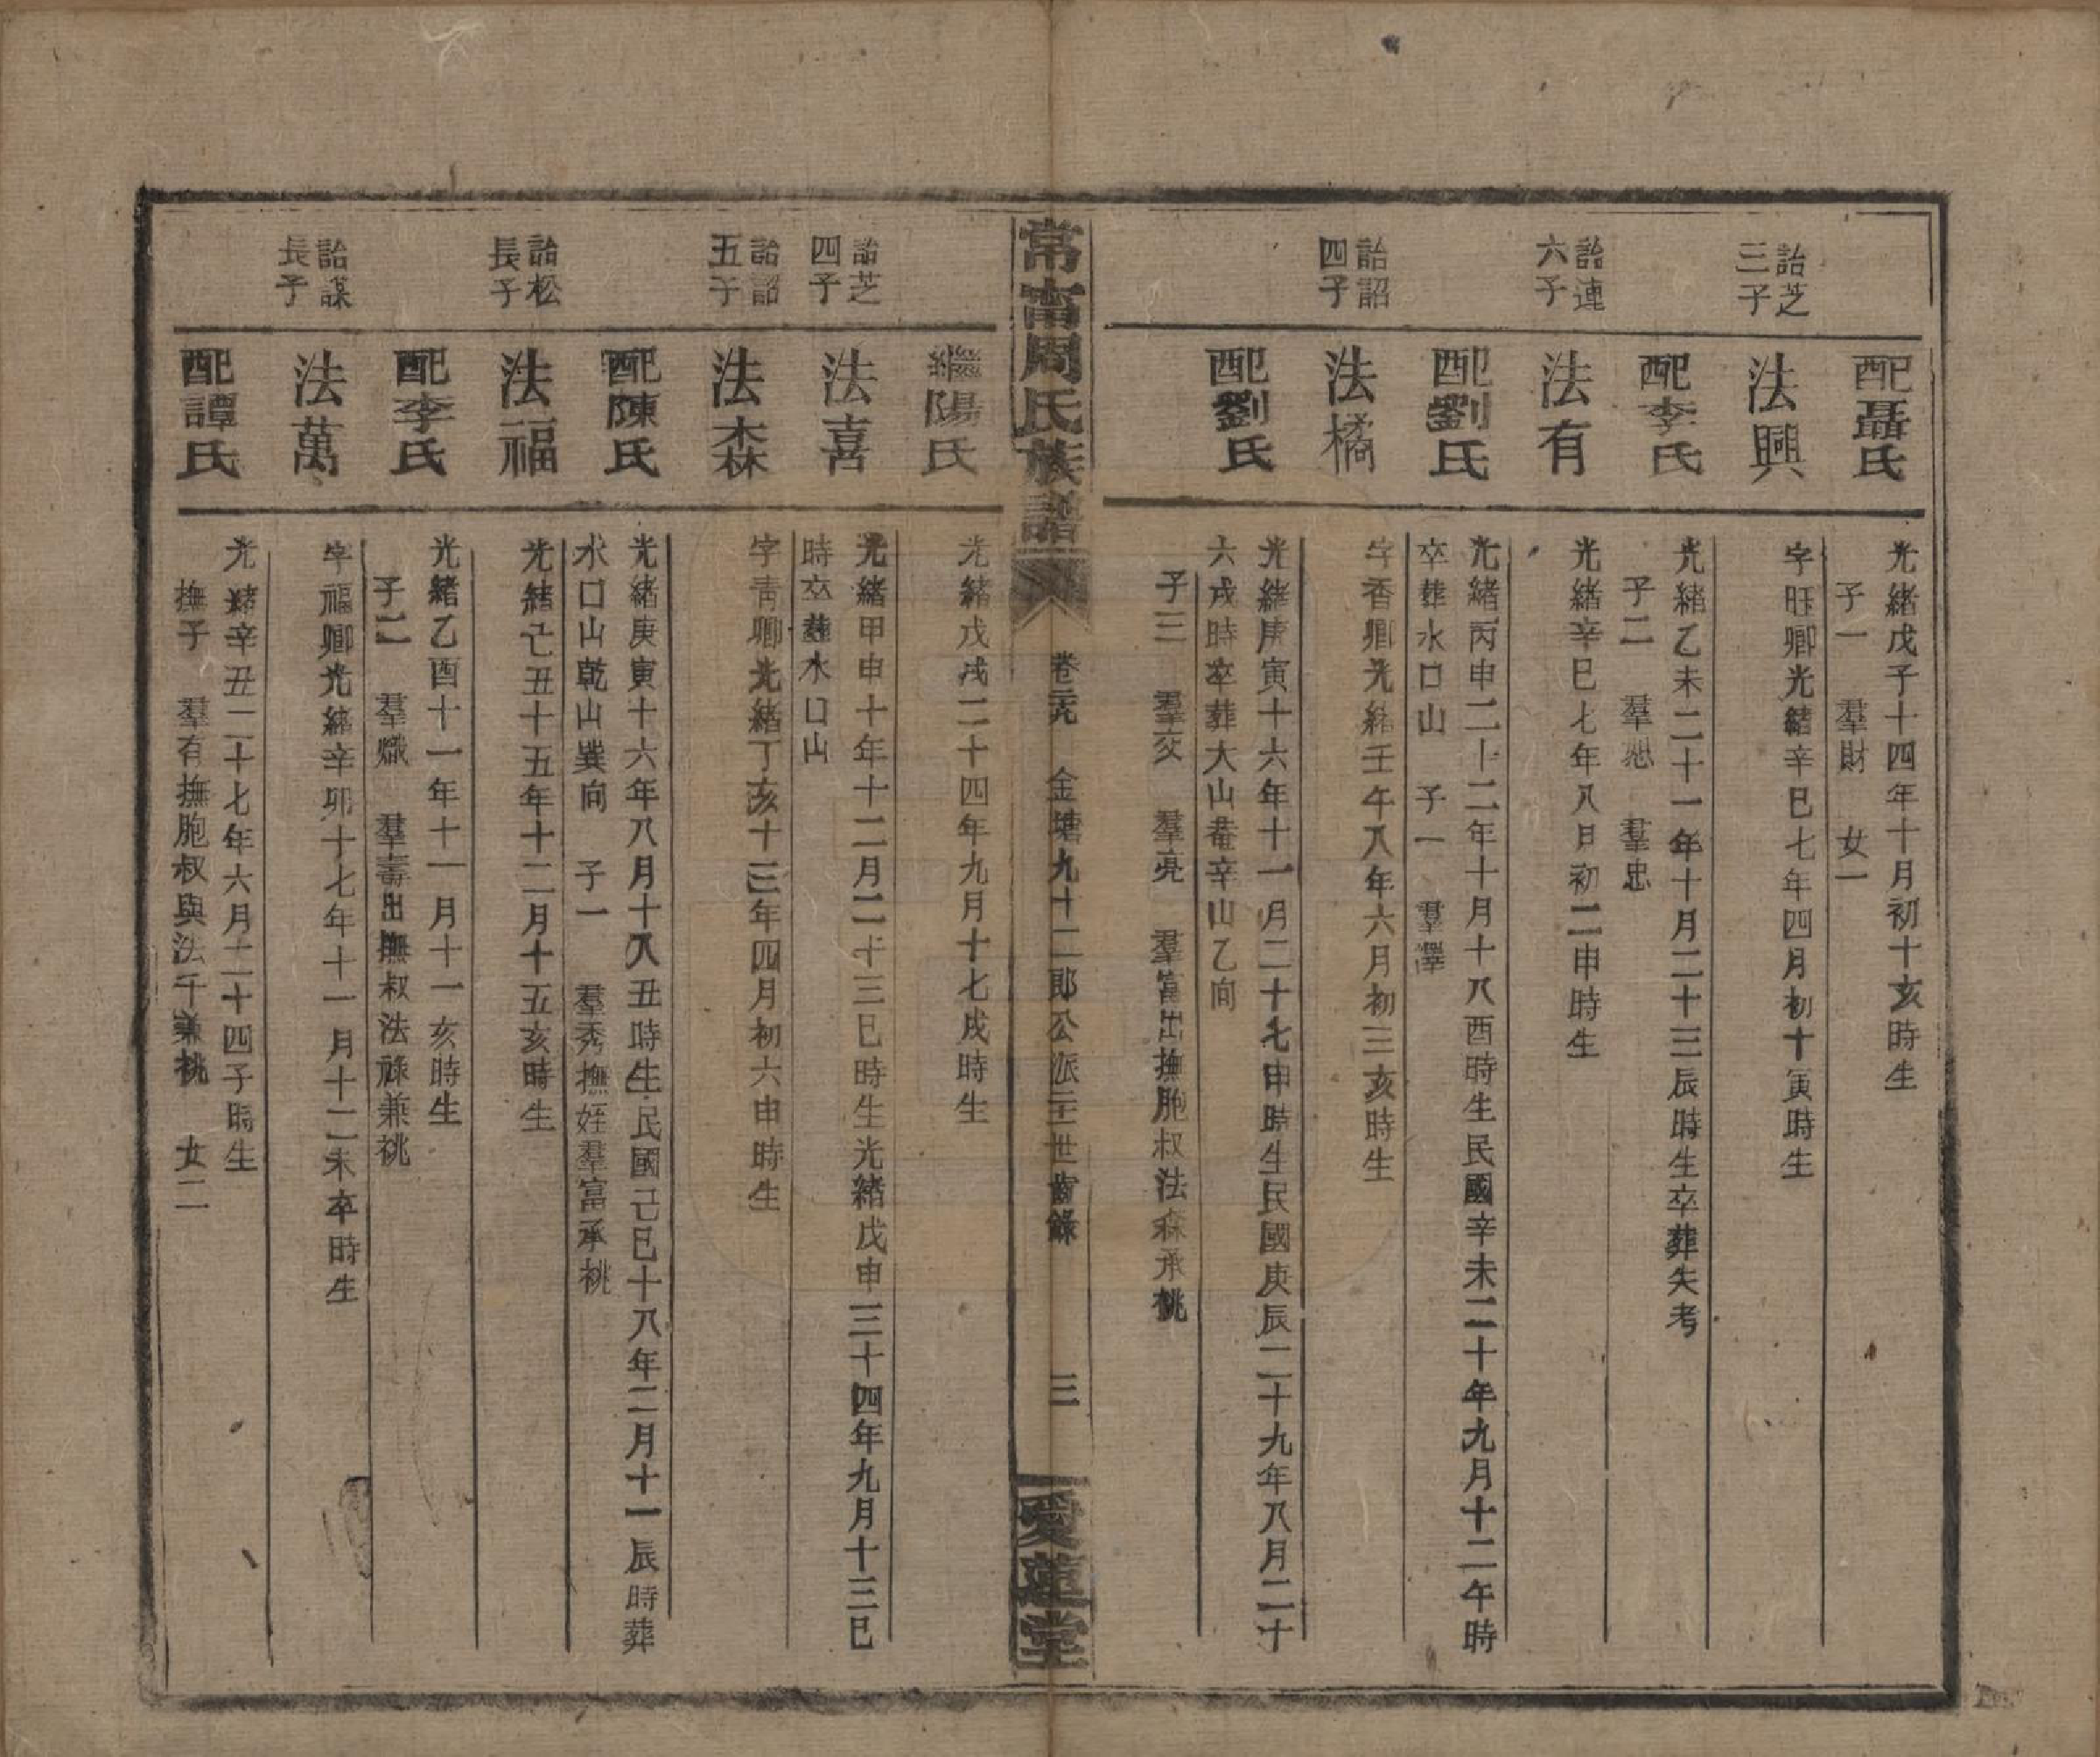 配聶氏
光緒戊子十四年十月初十亥時生
子一 羣財 女一
詒芝三子
法興
字旺卿光緒辛巳七年四月初十寅時生
配李氏
光緒乙未二十一年十月二十三辰時生卒葬失考
子二 羣恕 羣忠
詒連六子
法有
光緒辛巳七年八日初二申時生
配劉氏
光緒丙申二十二年十月十八酉時生民國辛未二十年九月十二午時
卒葬水口山 子一 羣澤
詒詔四子
法橘
字香卿光緒壬午八年六月初三亥時生
配劉氏
光緒庚寅十六年十一月二十七申時生民國庚辰二十九年八月二十
六戌時卒葬大山菴辛山乙向
子三 羣交 羣亮 羣富出撫胞叔法森承祧
常甯周氏族譜
卷 金塘九十二郎公派二十世齒錄
三
愛蓮堂
繼陽氏
光緒戊戌二十四年九月十七戌時生
詒芝四子
法喜
光緒甲申十年十二月二十三巳時生光緒戊申三十四年九月十三巳
時卒葬水口山
詒詔五子
法森
字靑卿光緒丁亥十三年四月初六申時生
配陳氏
光緒庚寅十六年八月十八丑時生民國己巳十八年二月十一辰時葬
水口山乾山巽向 子一 羣秀撫姪羣富承祧
詒松長子
法福
光緒己丑十五年十二月十五亥時生
配李氏
光緒乙酉十一年十一月十一亥時生
子二 羣熾 羣壽出撫叔法祿兼祧
詒謀長子
法萬
字福卿光緒辛卯十七年十一月十二未卒時生
配譚氏
光緒辛丑二十七年六月二十四子時生
撫子 羣有撫胞叔與法千兼祧 女二